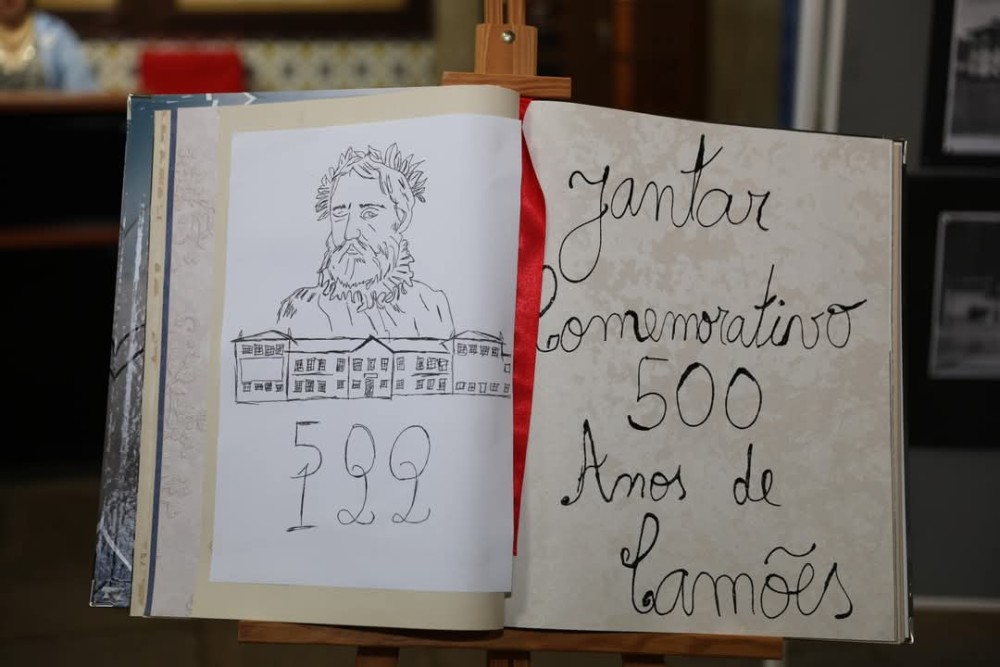 500
122
Jantar
Comemorativo
500
Anos de
Camões